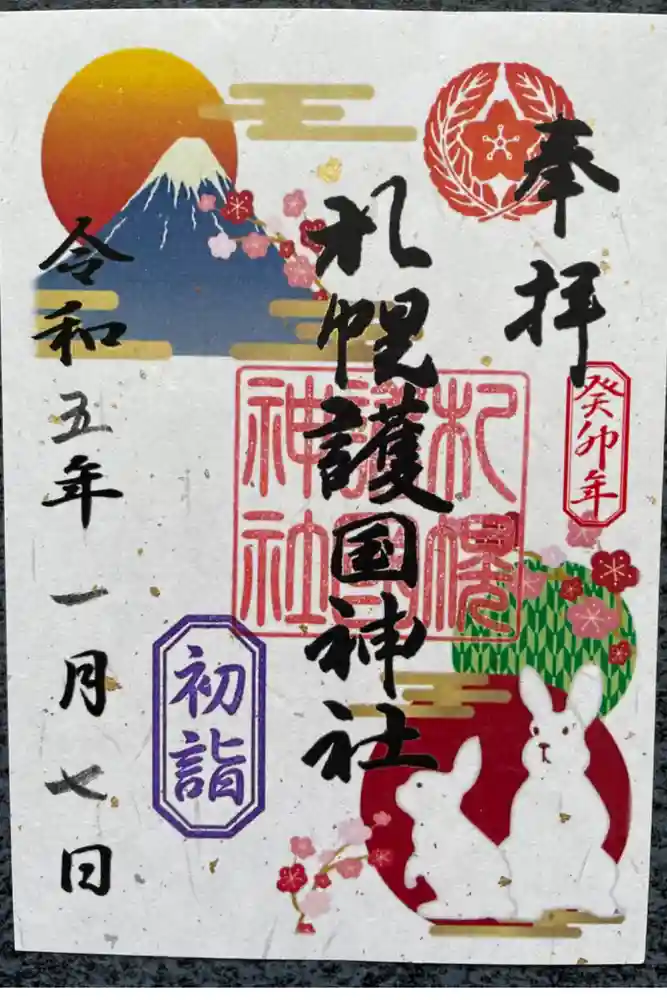 奉拝
癸卯年
札幌護国神社
札幌護国神社
初詣
令和五年一月七日